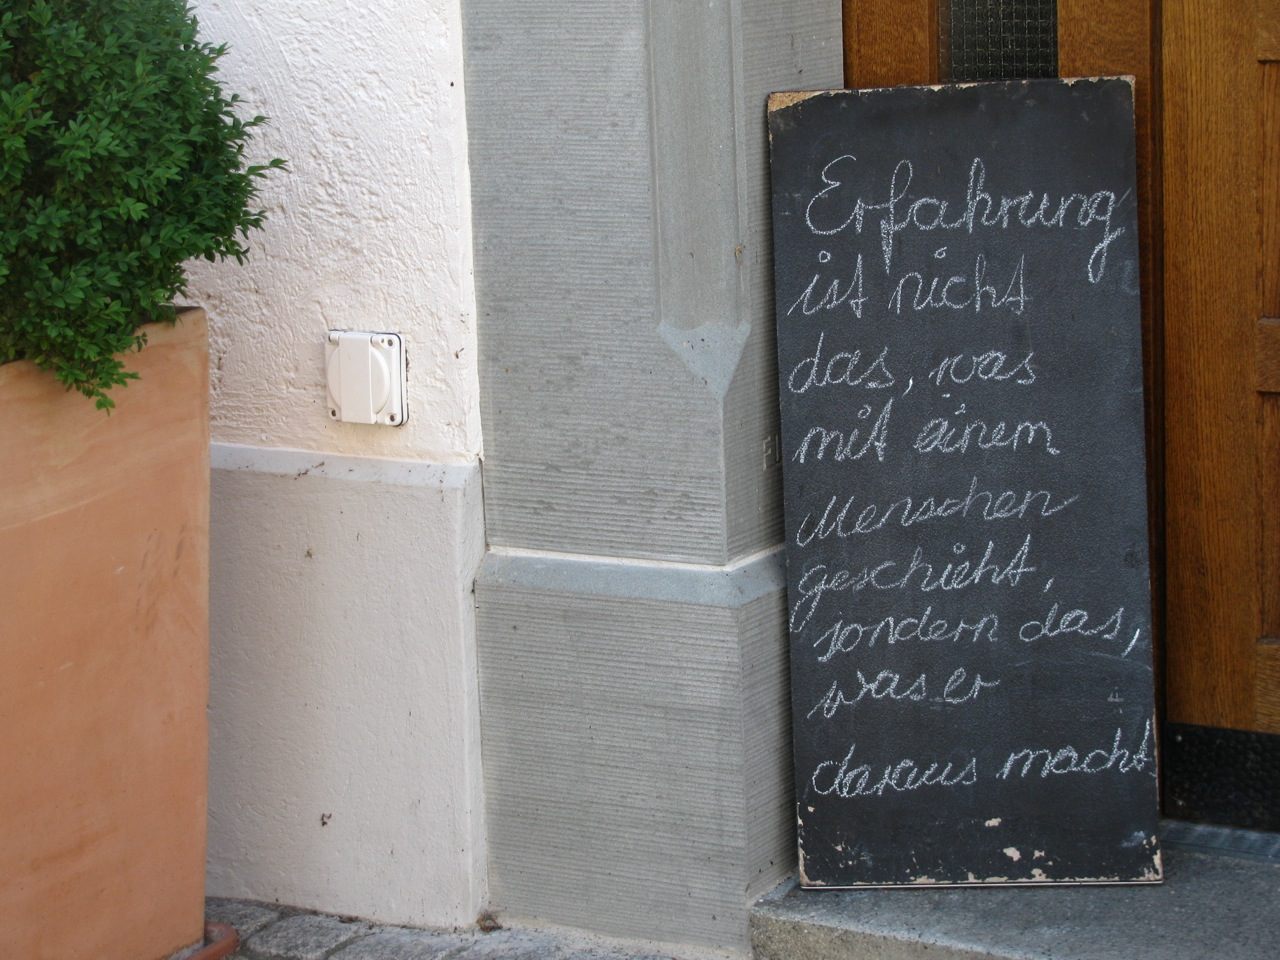 Erfahrung
ist nicht
das, was
mit einem
Menschen
geschieht,
sondern das,
was er
daraus macht